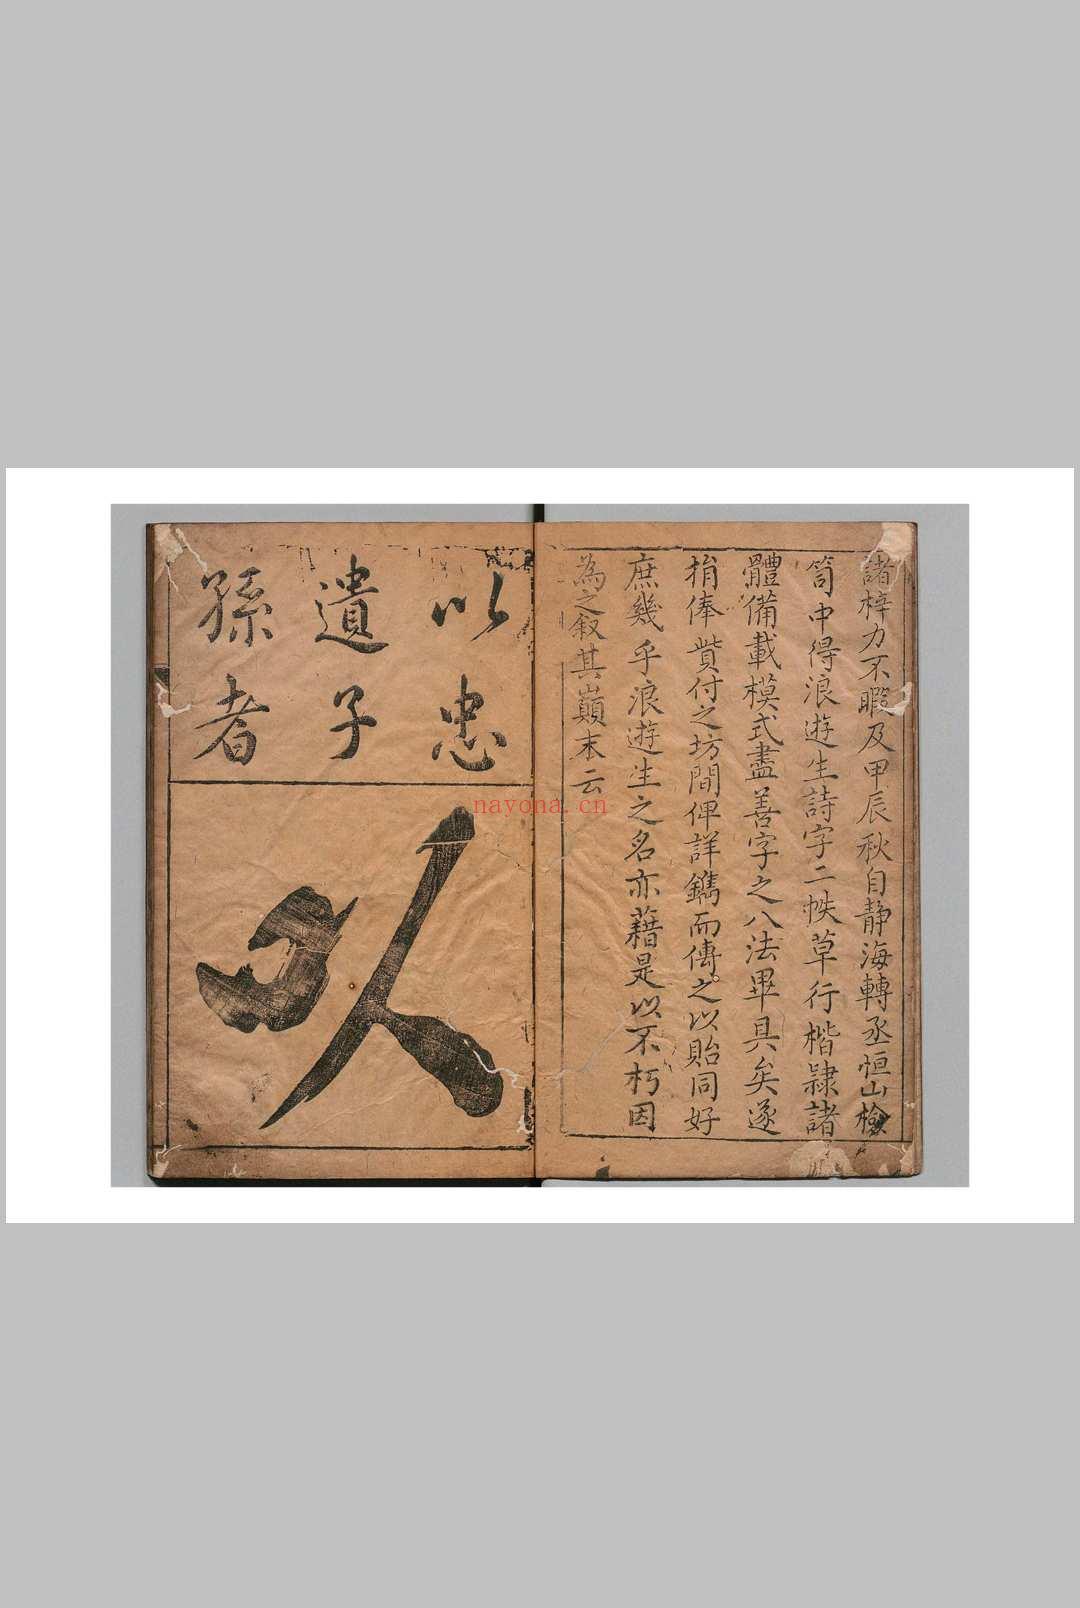 諸梓力不暇及甲辰秋自静海轉丞恒山檢
笥中得浪遊生詩字二帙草行楷隷諸
體備載模式盡善字之八法畢具矣遂
捐俸貲付之坊間俾詳鐫而傳之以貽同好
庶幾乎浪遊生之名亦藉是以不朽因
為之叙其巔末云
以忠
遺子
孫者
以
nayona.cn